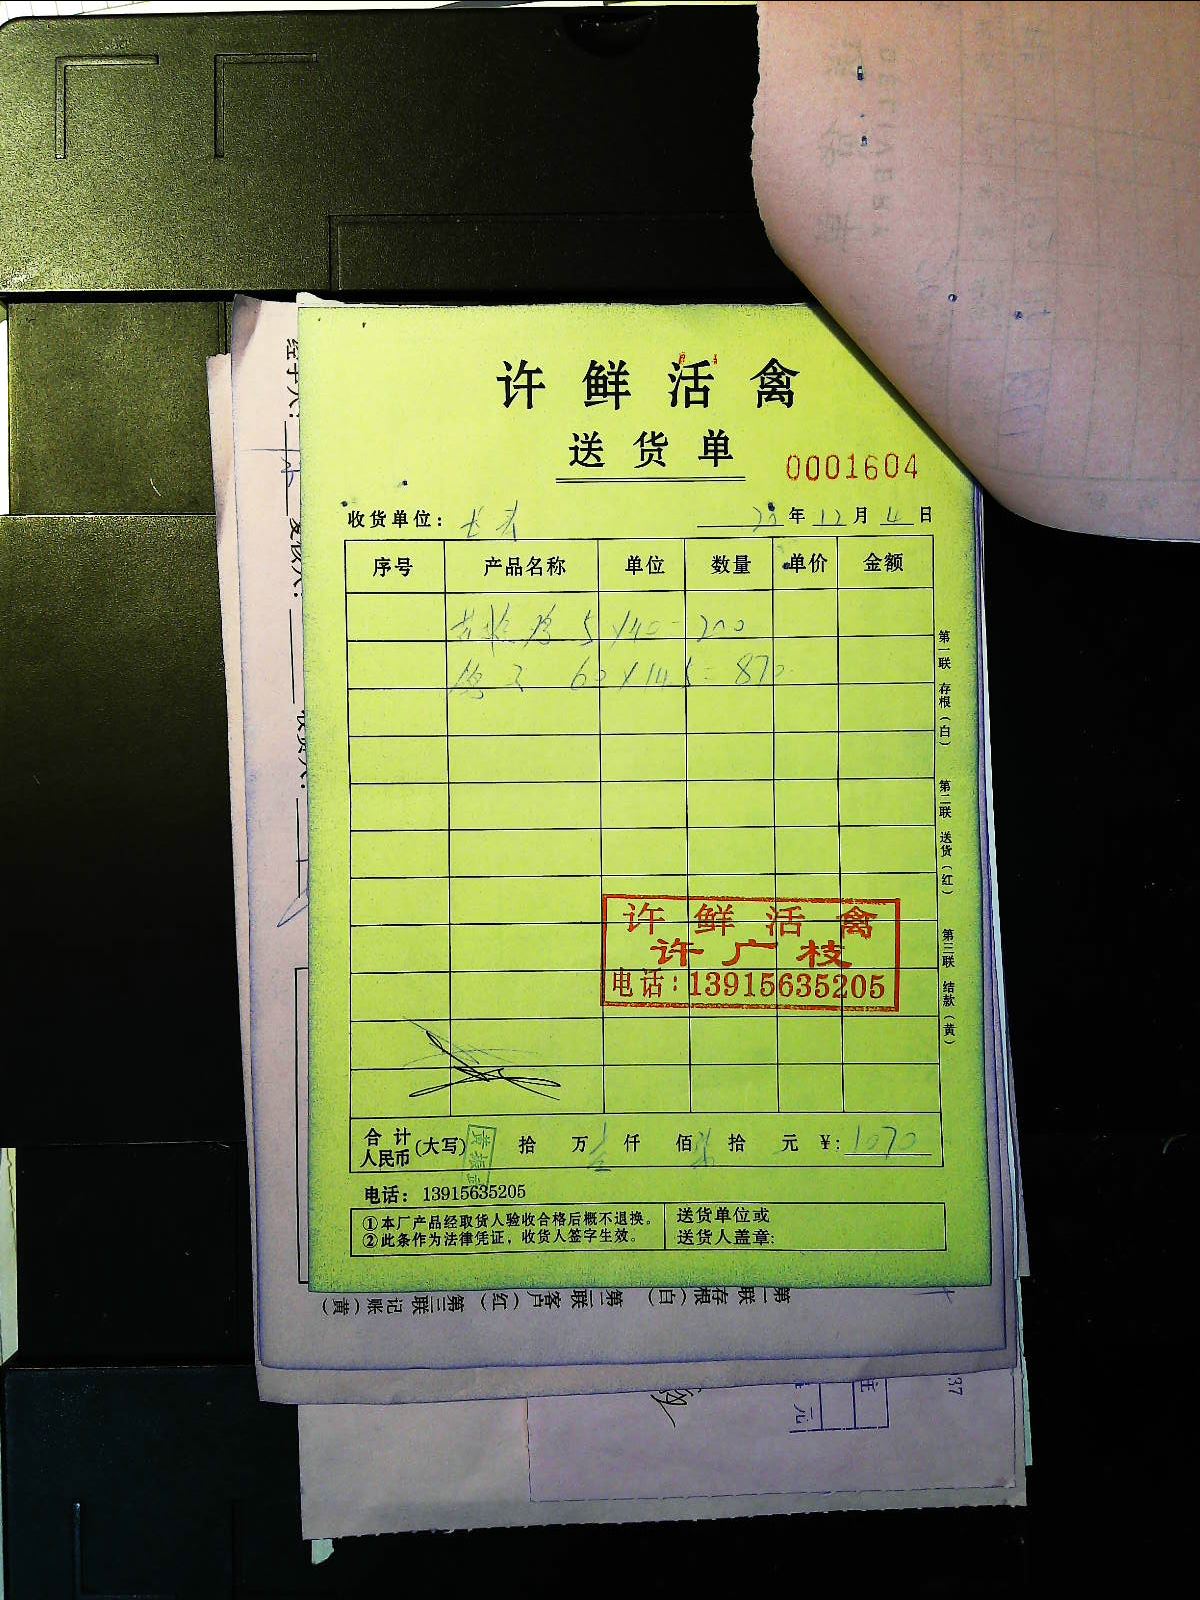 许鲜活禽
送货单
0001604
收货单位：
年 12 月 4 日
序号 产品名称 单位 数量 单价 金额
5 X40=200
60X14.5=870
第一联 存根（白） 第二联 送货（红） 第三联 结款（黄）
许鲜活禽
许广枝
电话：13915635205
合计人民币(大写) 拾 万 仟 佰 柒 拾 元 ￥: 1070
电话：13915635205
①本厂产品经取货人验收合格后概不退换。
②此条作为法律凭证，收货人签字生效。
送货单位或
送货人盖章:
第一联 存根（白） 第二联 客户（红） 第三联 记账（黄）
37
元